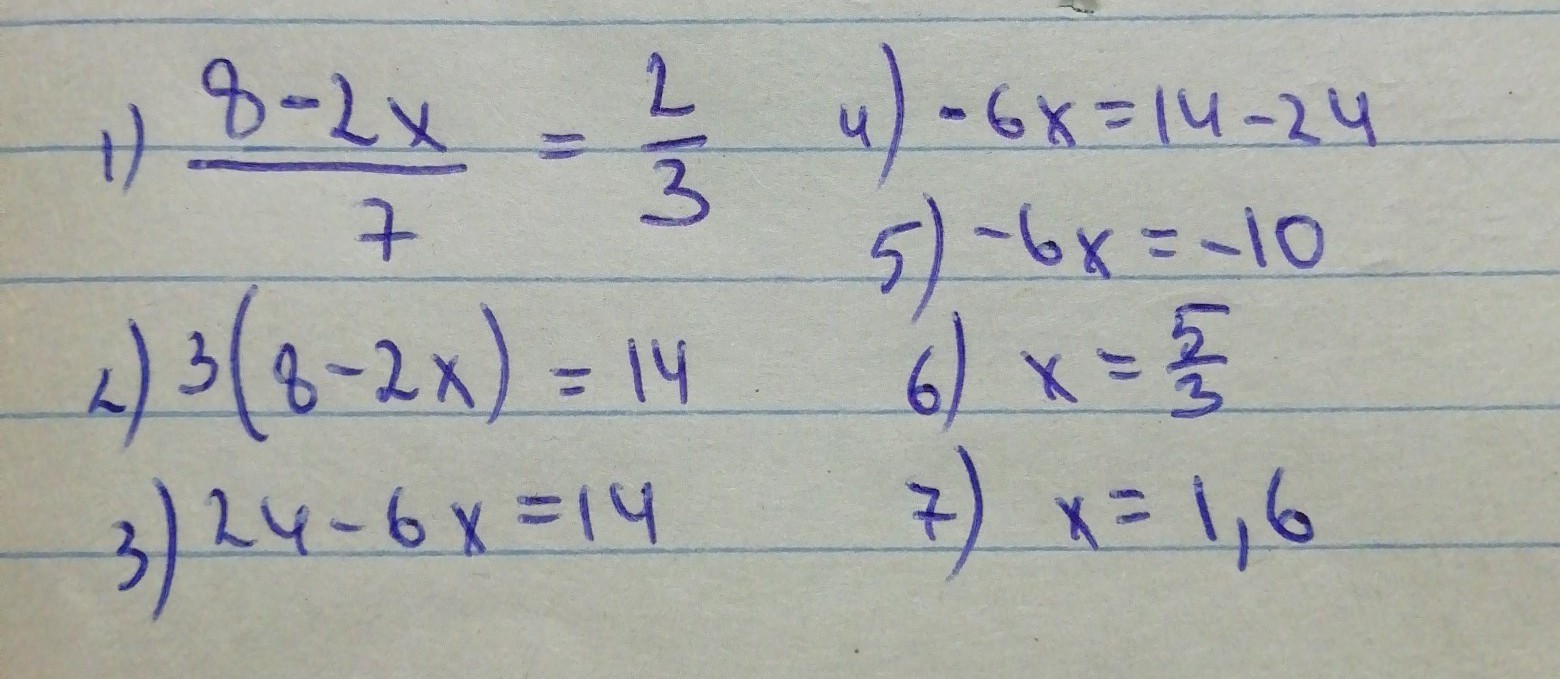 1) (8-2x)/7 = 2/3
2) 3(8-2x) = 14
3) 24-6x=14
4) -6x=14-24
5) -6x=-10
6) x=5/3
7) x=1,6